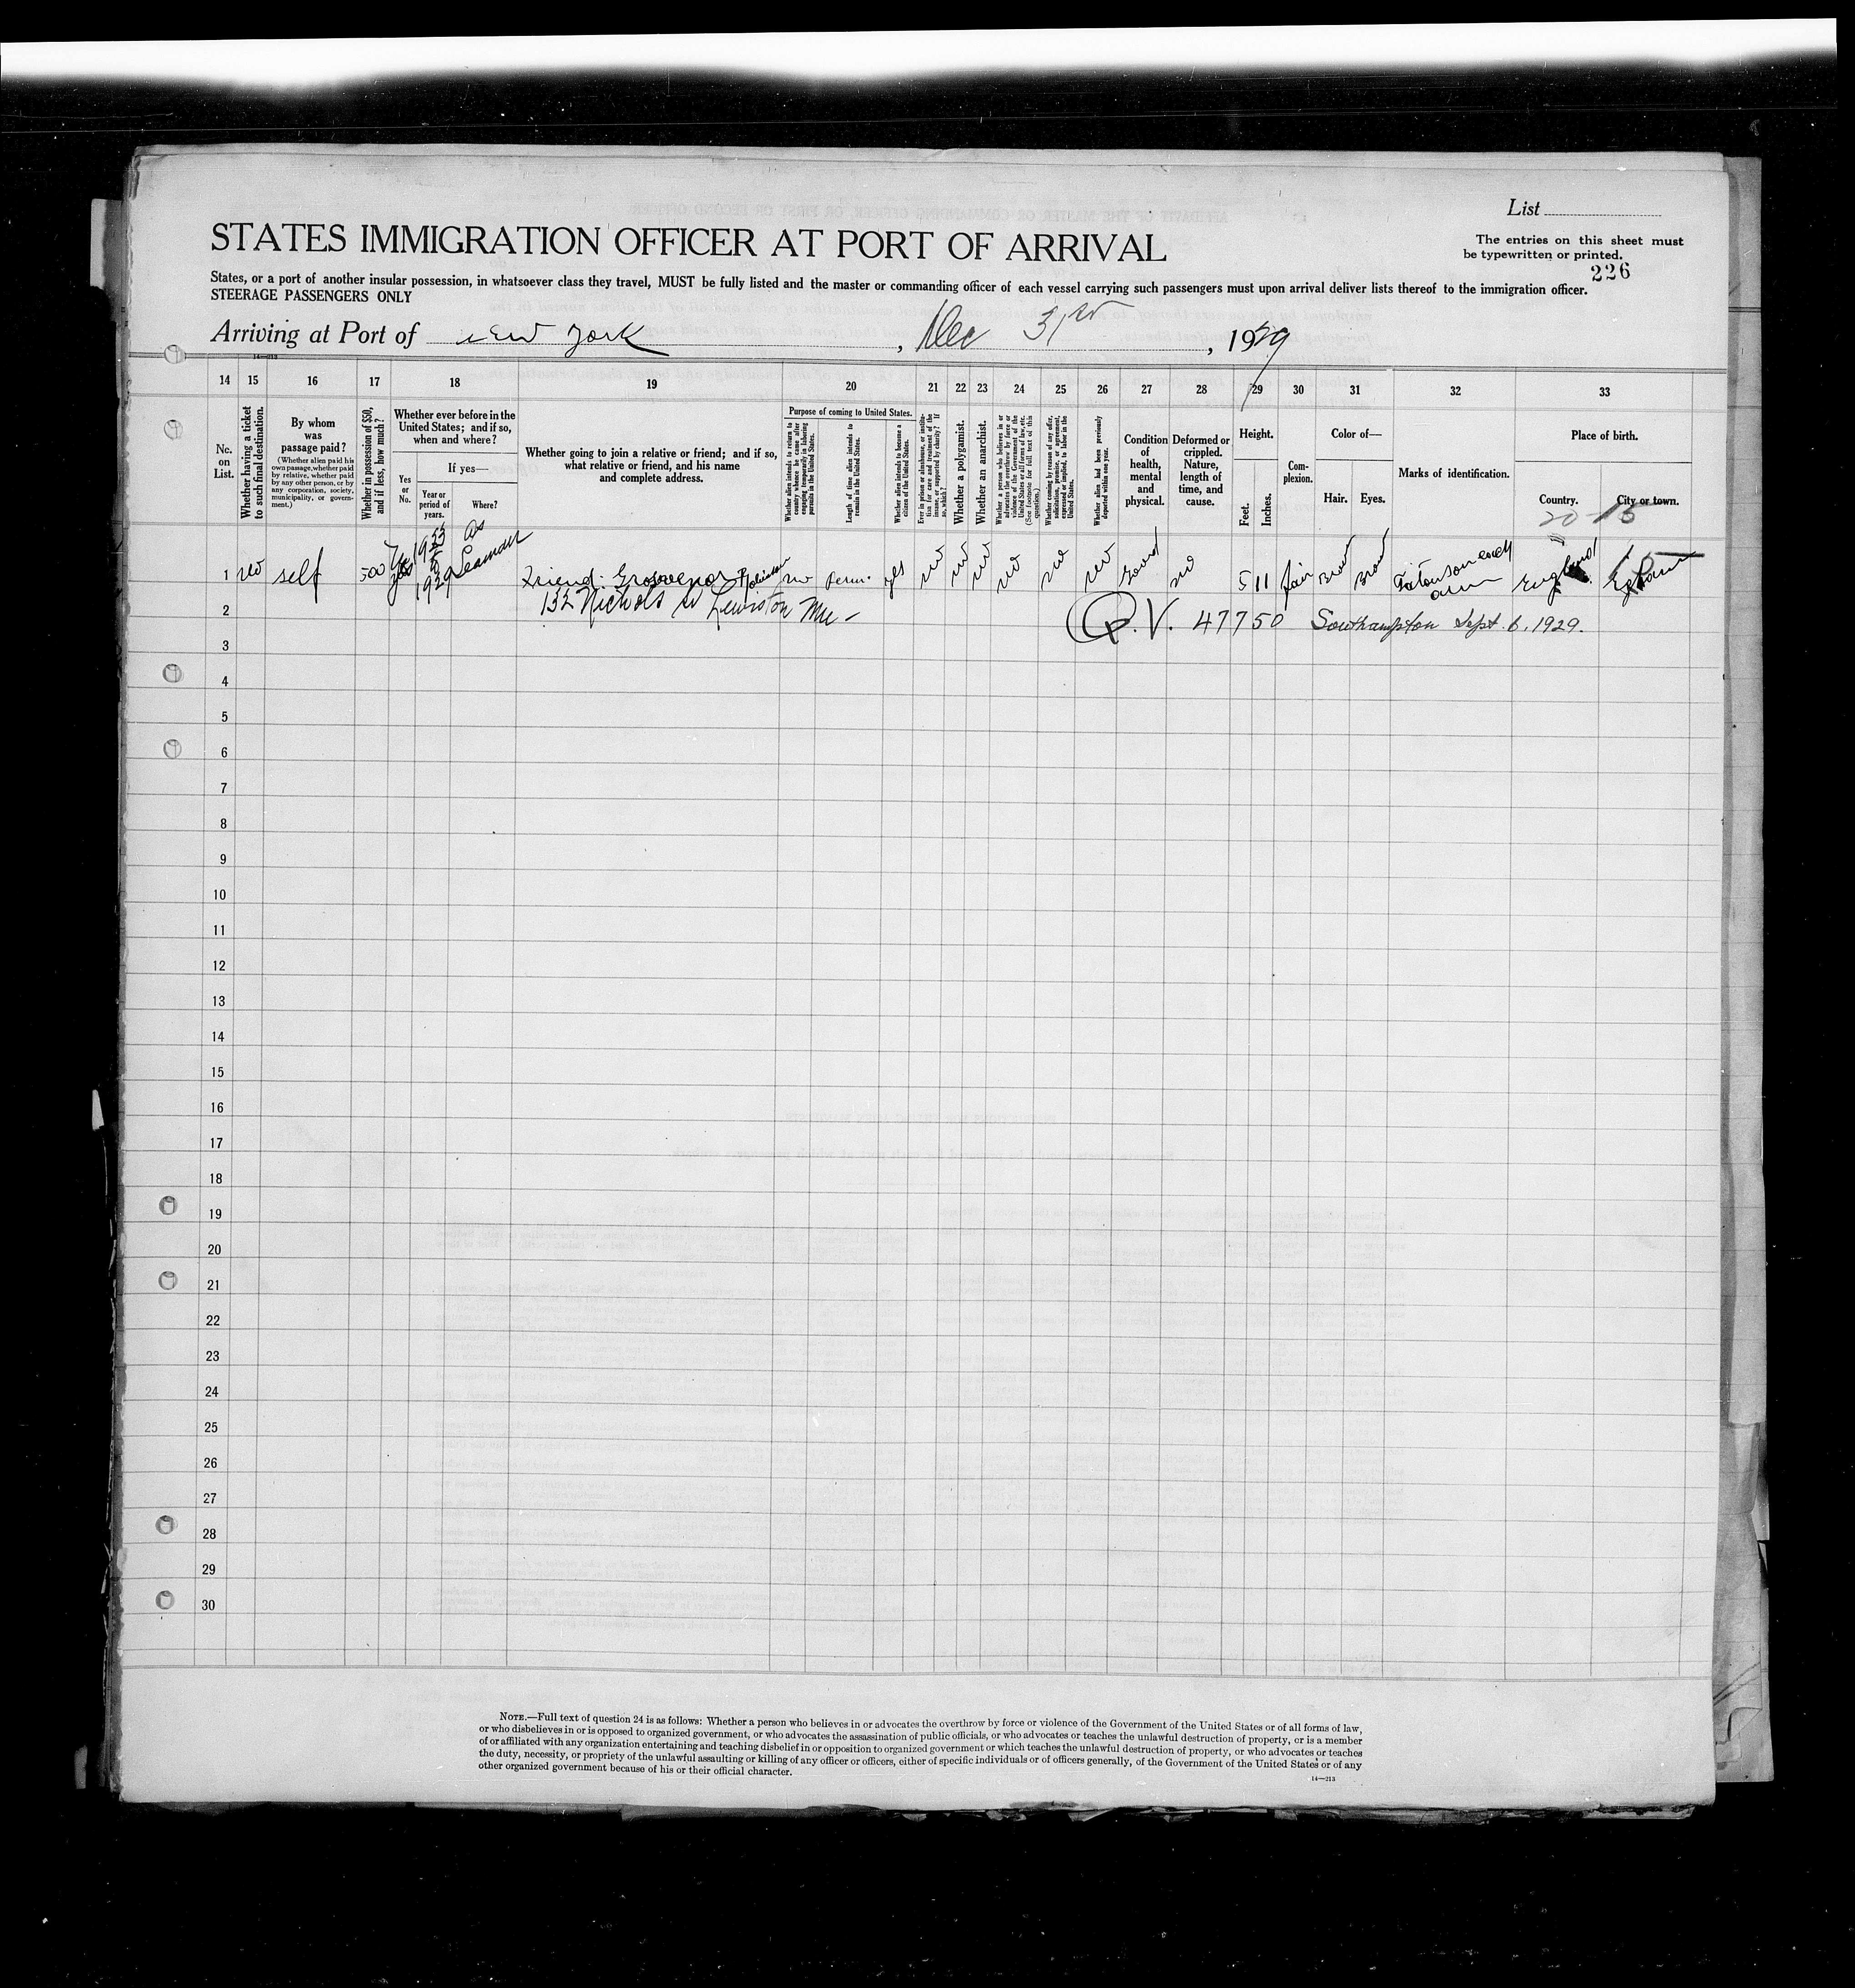 List
STATES IMMIGRATION OFFICER AT PORT OF ARRIVAL
The entries on this sheet must
be typewritten or printed.
226
States, or a port of another insular possession, in whatsoever class they travel, MUST be fully listed and the master or commanding officer of each vessel carrying such passengers must upon arrival deliver lists thereof to the immigration officer.
STEERAGE PASSENGERS ONLY
Arriving at Port of New York, Dec 31st, 1929
14—213
14 15 16 17 18 19 20 21 22 23 24 25 26 27 28 29 30 31 32 33
No. on List.
Whether having a ticket to such final destination.
By whom was passage paid?
(Whether alien paid his own passage, whether paid by relative, whether paid by any other person, or by any corporation, society, municipality, or government.)
Whether in possession of $50, and if less, how much?
Whether ever before in the United States; and if so, when and where?
Yes or No.
If yes—
Year or period of years.
Where?
Whether going to join a relative or friend; and if so, what relative or friend, and his name and complete address.
Purpose of coming to United States.
Whether alien intends to return to country whence he came after engaging temporarily in laboring pursuits in the United States.
Length of time alien intends to remain in the United States.
Whether alien intends to become a citizen of the United States.
Ever in prison or almshouse, or institution for care and treatment of the insane, or supported by charity? If so, which?
Whether a polygamist.
Whether an anarchist.
Whether a person who believes in or advocates the overthrow by force or violence of the Government of the United States or all forms of law, etc. (See footnote for full text of this question.)
Whether coming by reason of any offer, solicitation, promise, or agreement, expressed or implied, to labor in the United States.
Whether alien had been previously deported within one year.
Condition of health, mental and physical.
Deformed or crippled. Nature, length of time, and cause.
Height.
Feet.
Inches.
Complexion.
Color of—
Hair.
Eyes.
Marks of identification.
Place of birth.
Country.
City or town.
20-15
1 no self 500 yes 1929 as Seaman Friend Grosvenor Robinson no Perm. yes no no no no no no Good no 5 11 fair England
2 132 Nichols St Lewiston Me - Q.V. 47750 Southampton Sept. 6, 1929.
3
4
5
6
7
8
9
10
11
12
13
14
15
16
17
18
19
20
21
22
23
24
25
26
27
28
29
30
NOTE.—Full text of question 24 is as follows: Whether a person who believes in or advocates the overthrow by force or violence of the Government of the United States or of all forms of law,
or who disbelieves in or is opposed to organized government, or who advocates the assassination of public officials, or who advocates or teaches the unlawful destruction of property, or is a member
of or affiliated with any organization entertaining and teaching disbelief in or opposition to organized government or which teaches the unlawful destruction of property, or who advocates or teaches
the duty, necessity, or propriety of the unlawful assaulting or killing of any officer or officers, either of specific individuals or of officers generally, of the Government of the United States or of any
other organized government because of his or their official character.
14—213